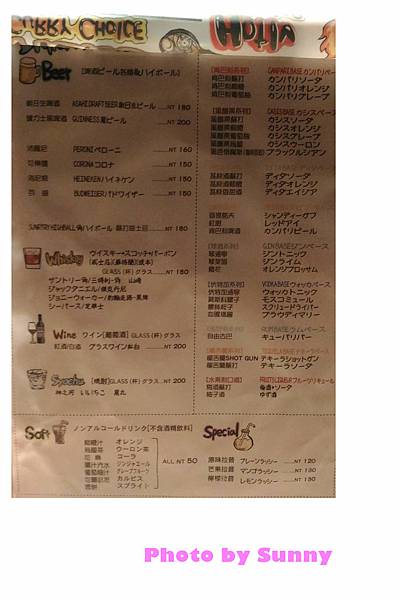 CURRY CHOICE
Beer [啤酒ビール各種&ハイボール]
朝日生啤酒 ASAHI DRAFT BEER 朝日生ビール NT 180
健力士黑啤酒 GUINNESS 黒ビール NT 200
PERONI ペローニ NT 160
可樂娜 CORONA コロナ NT 150
海尼根 HEINEKEN ハイネケン NT 150
百威 BUDWEISER バドワイザー NT 150
SUNTORY HIGHBALL 角ハイボール NT 180
Whisky ウイスキー・スコッチ・バーボン
GLASS (杯) グラス NT 180
サントリー角/三得利-角 山崎
ジャックダニエル/傑克丹尼
ジョニーウォーカー/約翰走路-黑牌
シーバース/芝華士
Wine ワイン[葡萄酒] GLASS (杯) グラス
紅酒/白酒 グラスワイン 紅白 NT 200
[燒酎] GLASS (杯) グラス
神之河 いいちこ 黑丸 NT 200
Soft ノンアルコールドリンク[不含酒精飲料]
柳橙汁 オレンジ
烏龍茶 ウーロン茶
可樂 コーラ
薑汁汽水 ジンジャエール
葡萄柚汁 グレープフルーツ
可爾必思 カルピス
雪碧 スプライト
ALL NT 50
CAMPARI BASE カンパリベース
カンパリソータ
カンパリオレンジ
カンパリグレープ
CASSIS BASE カシスベース
カシスソータ
カシスオレンジ
カシスグレープ
カシスウーロン
ブラックルシアン
ディタソータ
ディタオレンジ
ディタエイジア
シャンディーガフ
レッドアイ
カンパリビール
GIN BASE ジンベース
ジントニック
ジンライム
オレンジブロッサム
VODKA BASE ウォッカベース
ウォッカトニック
モスコミュール
スクリュードライバー
ブラウディマリー
RUM BASE ラムベース
自由古巴 キューバリバー
テキーラベース
龍舌蘭 SHOT GUN テキーラショットガン
龍舌蘭蘇打 テキーラソータ
[水果利口酒] FRUITS LIQUEUR フルーツリキュール
梅酒+ソータ
柚子酒 ゆず酒
Special
原味拉昔 プレーンラッシー NT 120
芒果拉昔 マンゴラッシー NT 130
檸檬拉昔 レモンラッシー NT 130
Photo by Sunny